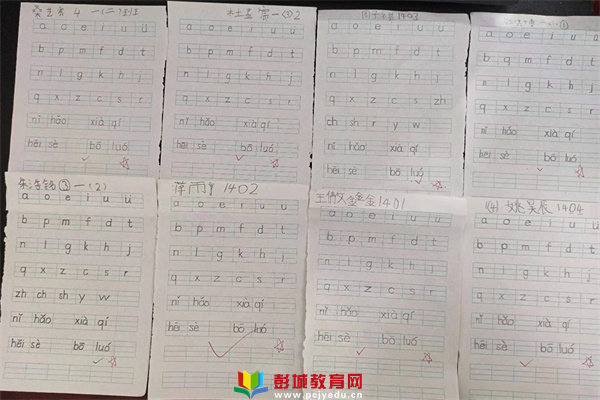 一(二)班
a o e i u ü
b p m f d t
n l g k h j
q x z c s r
nǐ hǎo xià qí
hēi sè bō luó
a o e i u ü
b p m f d t
n l g k h j
q x z c s r
nǐ hǎo xià qí
hēi sè bō luó
1403
a o e i u ü
b p m f d t
n l g k h j
q x z c s zh
ch sh r y w
nǐ hǎo xià qí
hēi sè bō luó
a o e i u ü
b q m f d t
n l g k h j
q x z c s r
nǐ hǎo xià qí
hēi sè bō luó
一(2)
a o e i u ü
b p m f d t
n l g k h j
q x z c s r
zh ch sh y w
nǐ hǎo xià qí
hēi sè bō luó
1402
a o e i u ü
b p m f d t
n l g k h j
q x z c s r
nǐ hǎo xià qí
hēi sè bō luó
1401
a o e i u ü
b p m f d t
n l g k h j
q x z c s r
nǐ hǎo xià qí
hēi sè bō luó
1404
a o e i u ü
b p m f d t
n l g k h j
q x z c s r
nǐ hǎo xià qí
hēi sè bō luó
彭城教育网
www.pcjyedu.cn